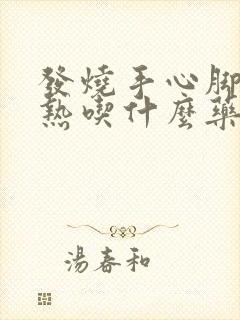 發燒手心腳
熱喫什麼藥
湯春和